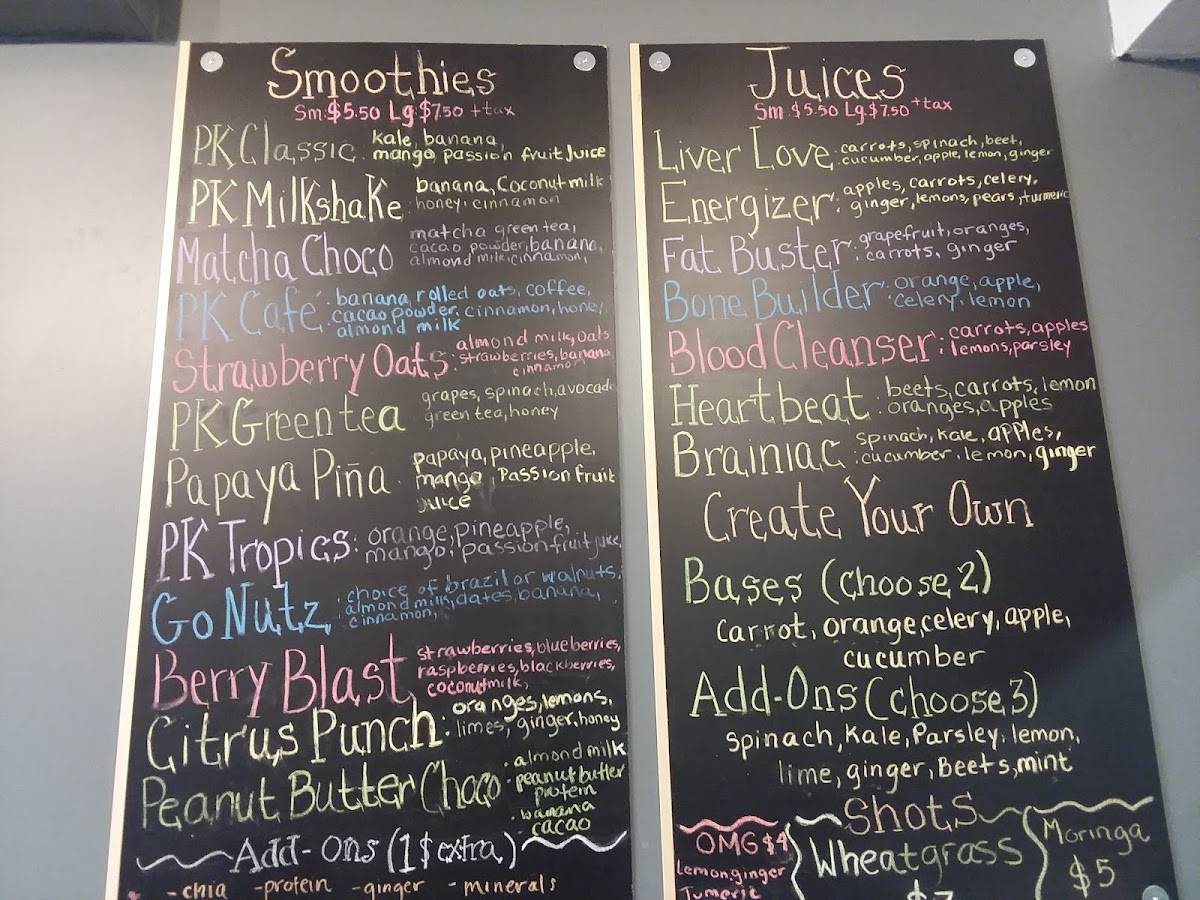 Smoothies
Sm:$5.50 Lg:$7.50 +tax
PK Classic: kale, banana,
mango, passion fruit Juice
PK MilKshaKe banana, Coconut milk
honey, cinnamon
Matcha Choco matcha green tea,
cacao powder, banana,
almond milk, cinnamon,
PK Café: banana, rolled oats, coffee,
cacao powder, cinnamon, honey,
almond milk
Strawberry Oats: almond milk, oats
strawberries, banana
cinnamon
PK Green tea grapes, spinach, avocado
green tea, honey
Papaya Piña papaya, pineapple,
mango, Passion fruit
Juice
PK Tropics: orange, pineapple,
mango, passion fruit juice,
Go Nutz: choice of brazil or walnuts,
almond milk, dates, banana,
cinnamon,
Berry Blast strawberries, blueberries,
raspberries, blackberries,
coconutmilk,
Citrus Punch: oranges, lemons,
limes, ginger, honey
Peanut Butter Choco · almond milk
· peanut butter
protein
· banana
· cacao
Add-Ons (1$ extra)
-chia -protein -ginger -minerals
Juices
Sm $5.50 Lg.$7.50 +tax
Liver Love: carrots, spinach, beet,
cucumber, apple, lemon, ginger
Energizer: apples, carrots, celery,
ginger, lemons, pears, turmeric
Fat Buster: grapefruit, oranges,
carrots, ginger
Bone Builder: orange, apple,
celery, lemon
Blood Cleanser: carrots, apples
lemons, parsley
Heartbeat: beets, carrots, lemon
oranges, apples
Brainiac: spinach, kale, apples,
cucumber, lemon, ginger
Create Your Own
Bases (choose 2)
Carrot, orange, celery, apple,
cucumber
Add-Ons (choose 3)
spinach, Kale, Parsley, lemon,
lime, ginger, Beets, mint
Shots
OMG $4
Lemon, ginger
Tumeric
Wheatgrass
Moringa
$5